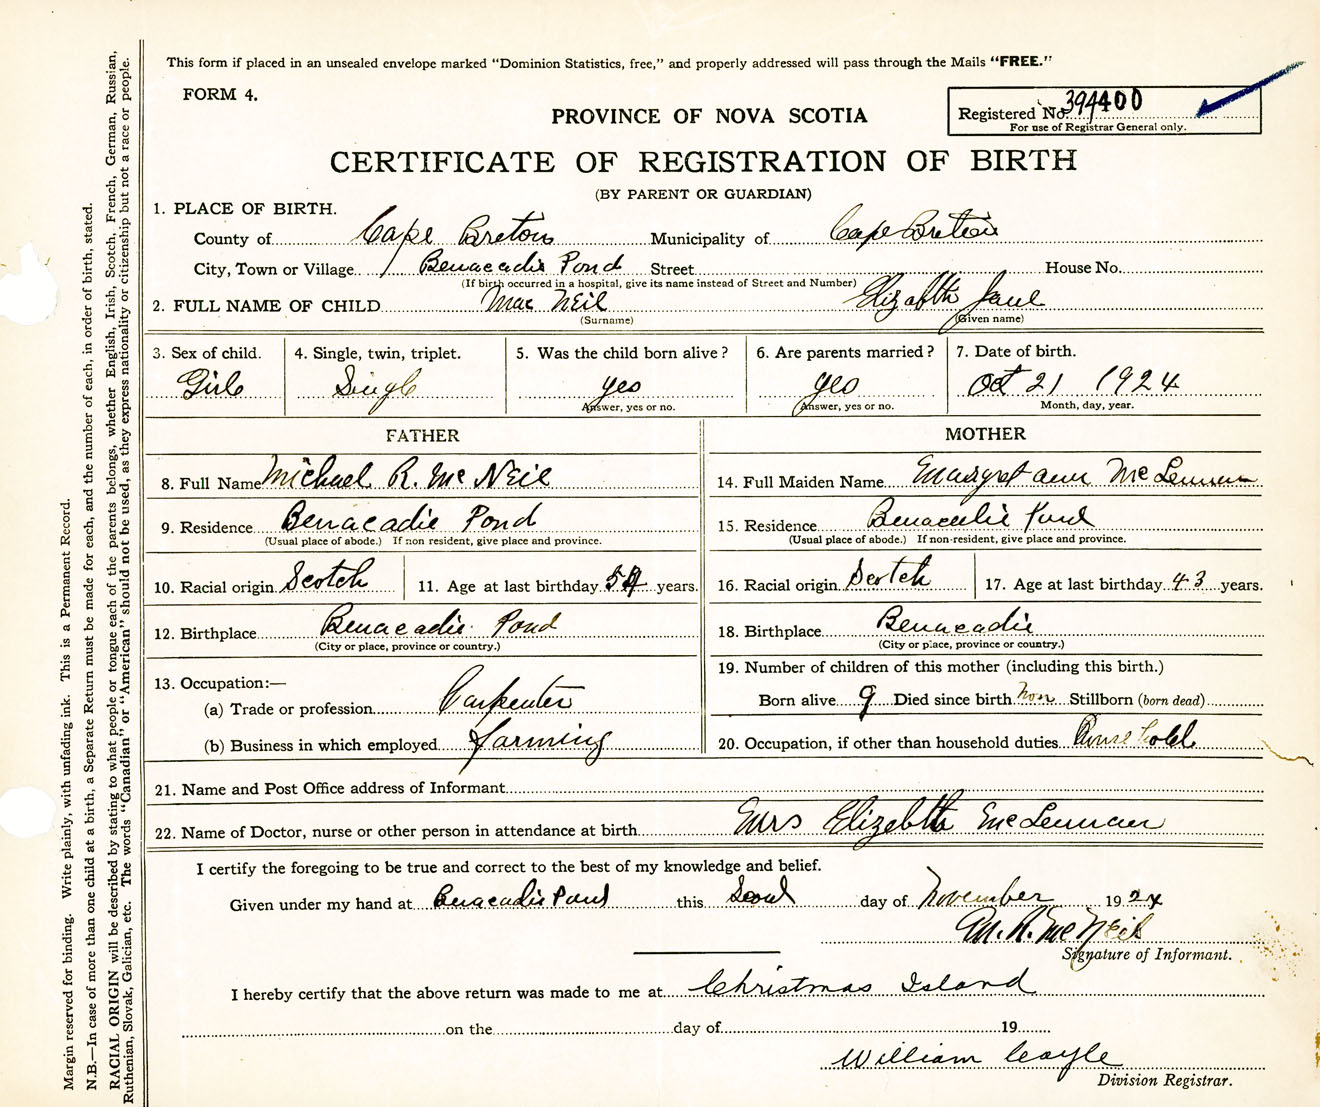 This form if placed in an unsealed envelope marked "Dominion Statistics, free," and properly addressed will pass through the Mails "FREE."
FORM 4.
PROVINCE OF NOVA SCOTIA
Registered No. 394400
For use of Registrar General only.
CERTIFICATE OF REGISTRATION OF BIRTH
(BY PARENT OR GUARDIAN)
1. PLACE OF BIRTH.
County of Cape Breton Municipality of Cape Breton
City, Town or Village Benacadie Pond Street House No.
(If birth occurred in a hospital, give its name instead of Street and Number)
2. FULL NAME OF CHILD Mac Neil Elizabth
(Surname) (Given name)
3. Sex of child. 4. Single, twin, triplet. 5. Was the child born alive? 6. Are parents married? 7. Date of birth.
Girle Singl yes yes Oct 21 1924
Answer, yes or no. Answer, yes or no. Month, day, year.
FATHER MOTHER
8. Full Name Michael R. Mc Neil 14. Full Maiden Name Margret ann McLennen
9. Residence Benacadie Pond 15. Residence Benacadie Pond
(Usual place of abode.) If non resident, give place and province. (Usual place of abode.) If non-resident, give place and province.
10. Racial origin Scotch 11. Age at last birthday 54 years. 16. Racial origin Scotch 17. Age at last birthday 43 years.
12. Birthplace Benacadie Pond 18. Birthplace Benacadie
(City or place, province or country.) (City or place, province or country.)
13. Occupation:— 19. Number of children of this mother (including this birth.)
(a) Trade or profession Carpenter Born alive 9 Died since birth non Stillborn (born dead)
(b) Business in which employed farming 20. Occupation, if other than household duties
21. Name and Post Office address of Informant
22. Name of Doctor, nurse or other person in attendance at birth Mrs Elizebth McLennan
I certify the foregoing to be true and correct to the best of my knowledge and belief.
Given under my hand at Benacadie Pond this day of November 1924
M. R. Mc Neil
Signature of Informant.
I hereby certify that the above return was made to me at Christmas Island
on the day of 19
William Coyle
Division Registrar.
Margin reserved for binding. Write plainly, with unfading ink. This is a Permanent Record.
N.B.—In case of more than one child at a birth, a Separate Return must be made for each, and the number of each, in order of birth, stated.
RACIAL ORIGIN will be described by stating to what people or tongue each of the parents belongs, whether English, Irish, Scotch, French, German, Russian,
Ruthenian, Slovak, Galician, etc. The words "Canadian" or "American" should not be used, as they express nationality or citizenship but not a race or people.